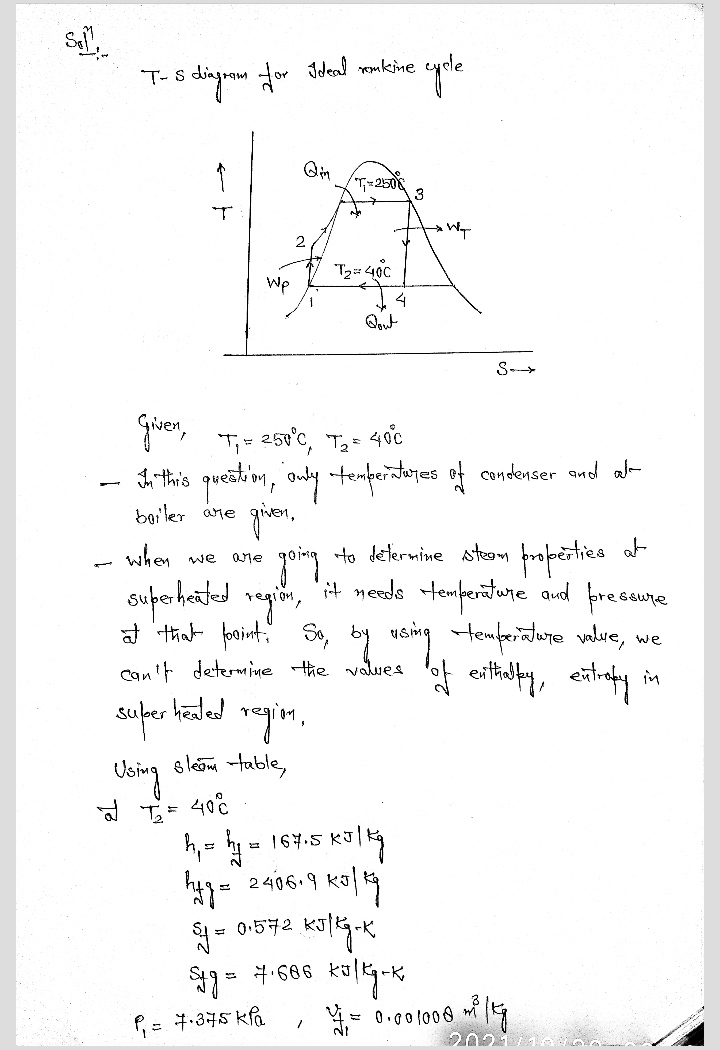 Solⁿ:-
T-S diagram for Ideal rankine cycle
↑
T
Qin
T₁=250°C
3
2
WT
Wp
T₂=40°C
1
4
Qout
S→
Given, T₁ = 250°C, T₂ = 40°C
- In this question, only temperatures of condenser and at
boiler are given,
- when we are going to determine steam properties at
superheated region, it needs temperature and pressure
at that point. So, by using temperature value, we
can't determine the values of enthalpy, entropy in
super heated region,
Using steam table,
at T₂ = 40°C
h₁ = hf = 167.5 KJ/Kg
hfg = 2406.9 KJ/Kg
Sf = 0.572 KJ/Kg-K
Sfg = 7.686 KJ/Kg-K
P₁ = 7.375 kPa , Vf₁ = 0.001008 m³/Kg